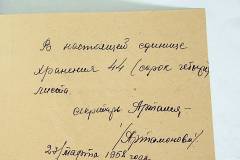 В настоящей единице
хранения 44 (сорок четыре)
листа.
секретарь
/Артамонова/
27/марта 195 года